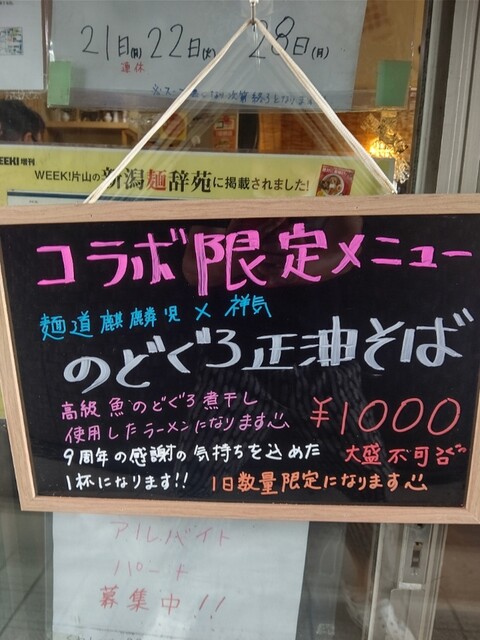 21日(月) 22日(火) 28日(月)
連休
WEEK!増刊
WEEK!片山の新潟麺辞苑に掲載されました!
コラボ限定メニュー
麺道麒麟児×祥気
のどぐろ正油そば
高級魚のどぐろ煮干し
使用したラーメンになります
¥1000
9周年の感謝の気持ちを込めた
大盛不可
1杯になります!!
1日数量限定になります
アルバイト
パート
募集中!!